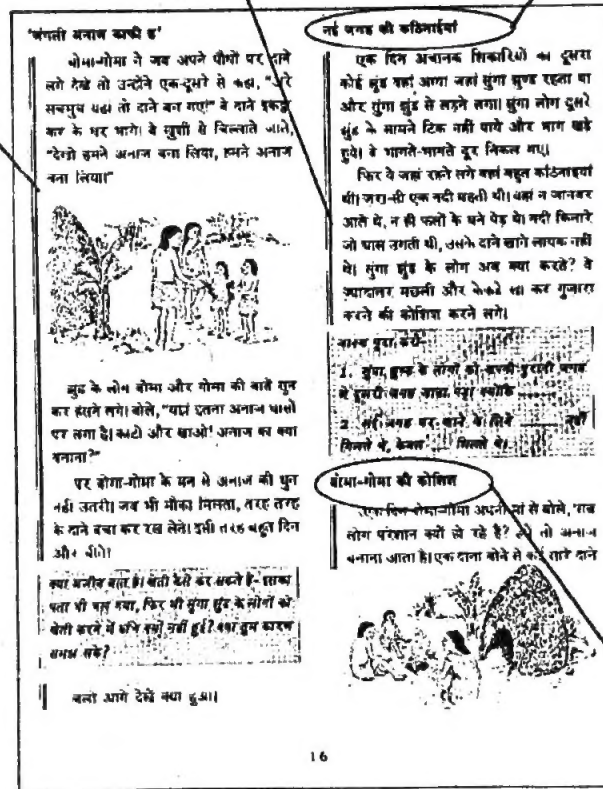 'जंगली अनाज काफी है'
बोमा-गोमा ने जब अपने पौधों पर दाने
लगे देखे तो उन्होंने एक-दूसरे से कहा, "अरे
सचमुच यहां तो दाने बन गए!" वे दाने इकट्ठा
कर के घर भागे। वे खुशी से चिल्लाते जाते,
"देखो हमने अनाज बना लिया, हमने अनाज
बना लिया।"
झुंड के लोग बोमा और गोमा की बातें सुन
कर हंसने लगे। बोले, "यहां इतना अनाज घासों
पर लगा है। काटो और खाओ! अनाज का क्या
बनाना?"
पर बोमा-गोमा के मन से अनाज की धुन
नहीं उतरी। जब भी मौका मिलता, तरह तरह
के दाने बचा कर रख लेते। इसी तरह बहुत दिन
और बीते।
क्या अजीब बात है। खेती कैसे कर सकते है- इसका
पता भी चल गया, फिर भी सुंगा झुंड के लोगों को
खेती करने में रुचि क्यों नहीं हुई? क्या तुम कारण
समझ सके?
चलो आगे देखें क्या हुआ।
नई जगह की कठिनाईयां
एक दिन अचानक शिकारियों का दूसरा
कोई झुंड वहां आया जहां सुंगा झुण्ड रहता था
और सुंगा झुंड से लड़ने लगा। सुंगा लोग दूसरे
झुंड के सामने टिक नहीं पाये और भाग खड़े
हुये। वे भागते-भागते दूर निकल गए।
फिर वे जहां रहने लगे वहां बहुत कठिनाइयां
थी। जरा-सी एक नदी बहती थी। वहां न जानवर
आते थे, न ही फलों के घने पेड़ थे। नदी किनारे
जो घास उगती थी, उसके दाने खाने लायक नहीं
थे। सुंगा झुंड के लोग अब क्या करते? वे
ज़्यादातर मछली और केकड़े खा कर गुजारा
करने की कोशिश करने लगे।
वाक्य पूरा करो-
1. सुंगा झुण्ड के लोगों को अपनी पुरानी जगह
से दूसरी जगह जाना पड़ा क्योंकि ........
2. नई जगह पर खाने के लिये ........ नहीं
मिलते थे, केवल ........ मिलते थे।
बोमा-गोमा की कोशिश
एक दिन बोमा-गोमा अपनी मां से बोले, "सब
लोग परेशान क्यों हो रहे है? हमें तो अनाज
बनाना आता है। एक दाना बोने से कई सारे दाने
16